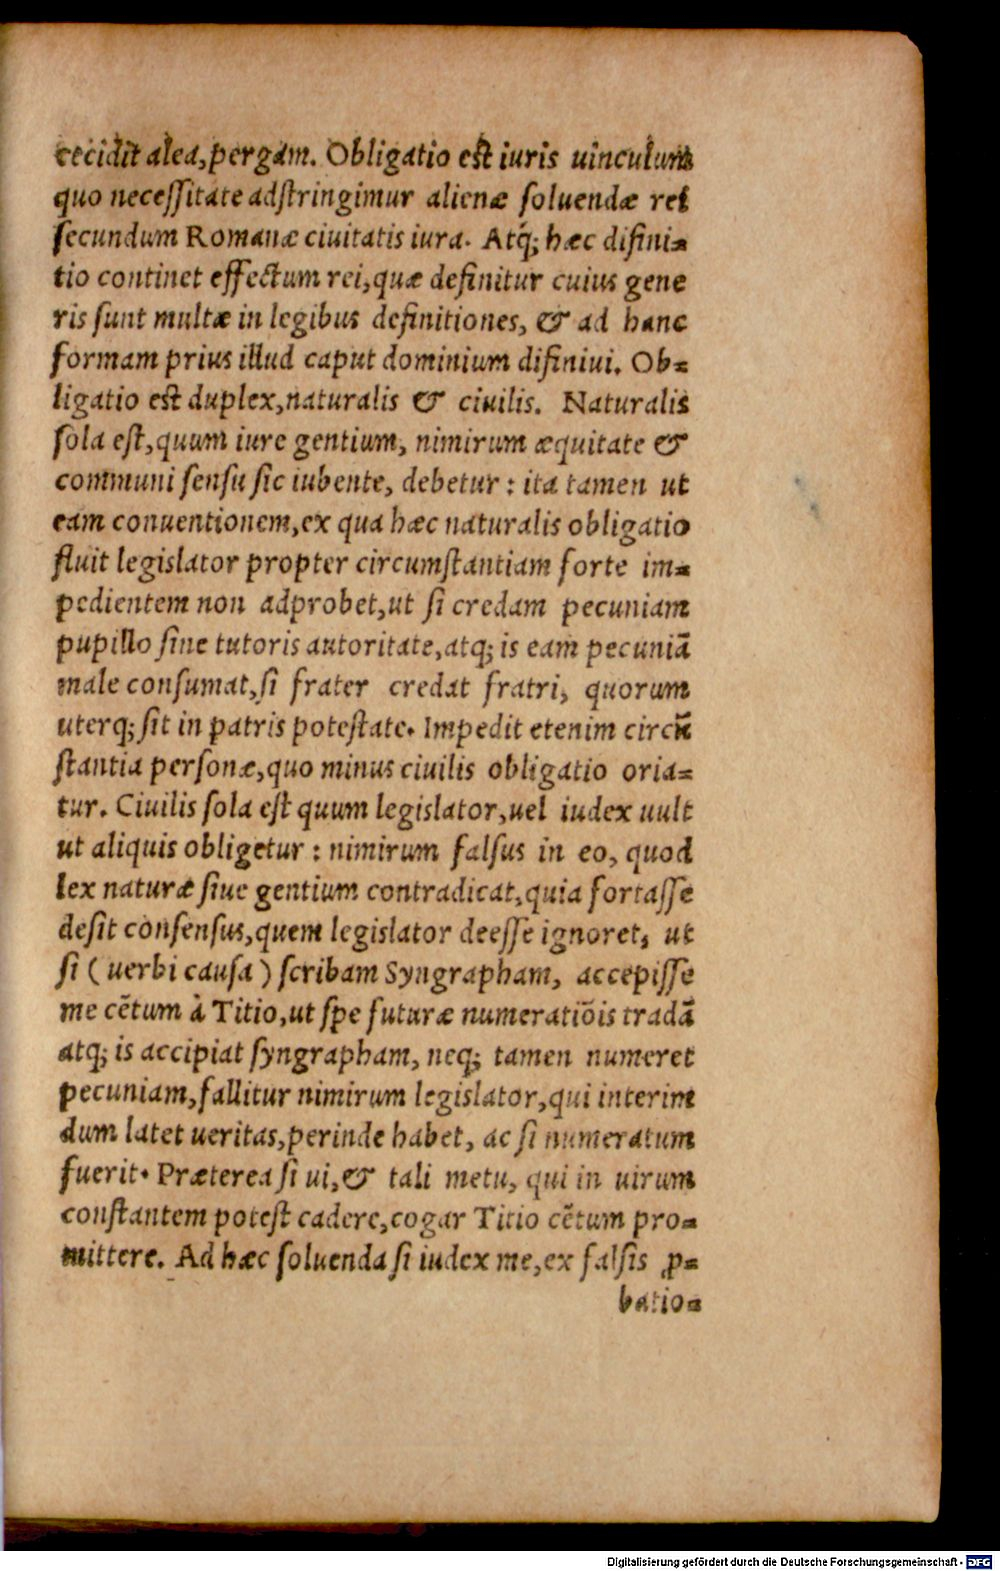 cecidit alea, pergam. Obligatio est iuris uinculum
quo necessitate adstringimur alienæ soluendæ rei
secundum Romanæ ciuitatis iura. Atq́; hæc difini-
tio continet effectum rei, quæ definitur cuius gene
ris sunt multæ in legibus definitiones, & ad hanc
formam prius illud caput dominium difiniui. Ob-
ligatio est duplex, naturalis & ciuilis. Naturalis
sola est, quum iure gentium, nimirum æquitate &
communi sensu sic iubente, debetur : ita tamen ut
eam conuentionem, ex qua hæc naturalis obligatio
fluit legislator propter circumstantiam forte im-
pedientem non adprobet, ut si credam pecuniam
pupillo sine tutoris autoritate, atq; is eam pecuniā
male consumat, si frater credat fratri, quorum
uterq; sit in patris potestate. Impedit etenim circū
stantia personæ, quo minus ciuilis obligatio oria-
tur. Ciuilis sola est quum legislator, uel iudex uult
ut aliquis obligetur : nimirum falsus in eo, quod
lex naturæ siue gentium contradicat, quia fortasse
desit consensus, quem legislator deesse ignoret, ut
si ( uerbi causa ) scribam Syngrapham, accepisse
me cētum à Titio, ut spe futuræ numeratiōis tradā
atq; is accipiat syngrapham, neq; tamen numeret
pecuniam, fallitur nimirum legislator, qui interim
dum latet ueritas, perinde habet, ac si numeratum
fuerit. Præterea si ui, & tali metu, qui in uirum
constantem potest cadere, cogar Titio cētum pro-
mittere. Ad hæc soluenda si iudex me, ex falsis ꝓ-
batio-
Digitalisierung gefördert durch die Deutsche Forschungsgemeinschaft - DFG